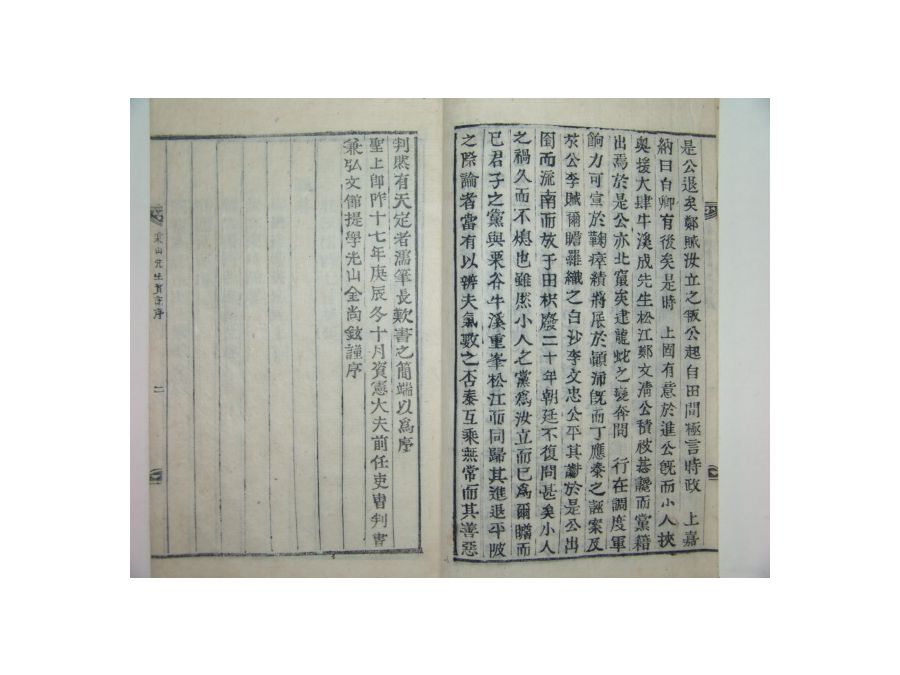 是公退矣鄭賊汝立之叛公起自田間極言時政 上嘉
納曰白卿有後矣是時 上固有意於進公旣而小人挾
奧援大肆牛溪成先生松江鄭文淸公積被甚讒而黨籍
出焉於是公亦北竄矣逮龍蛇之變奔問 行在調度軍
餉力可宣於鞠瘁績將展於顚沛旣而丁應泰之誣案及
於公李賊爾瞻羅織之白沙李文忠公平其讞於是公出
圄而流南而放于田枳廢二十年朝廷不復問甚矣小人
之禍久而不熄也雖然小人之黨爲汝立而已爲爾瞻而
已君子之黨與栗谷牛溪重峯松江而同歸其進退平陂
之際論者當有以辨夫氣數之否泰互乘無常而其善惡
判然有天定者濡筆長歎書之簡端以爲序
聖上卽阼十七年庚辰冬十月資憲大夫前任吏曹判書
兼弘文館提學光山金尙鉉謹序
山先生 序
二